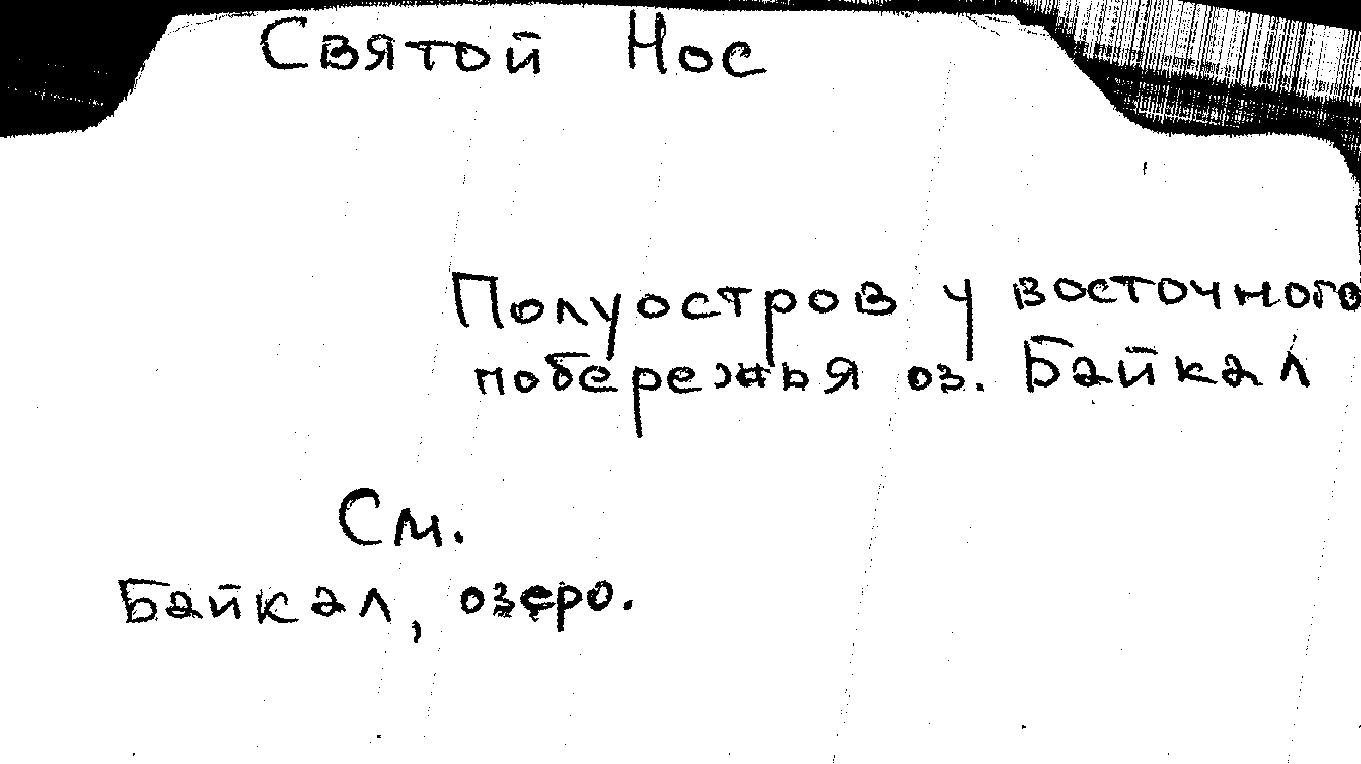 Святой Нос
Полуостров у восточного
побережья оз. Байкал
См.
Байкал, озеро.